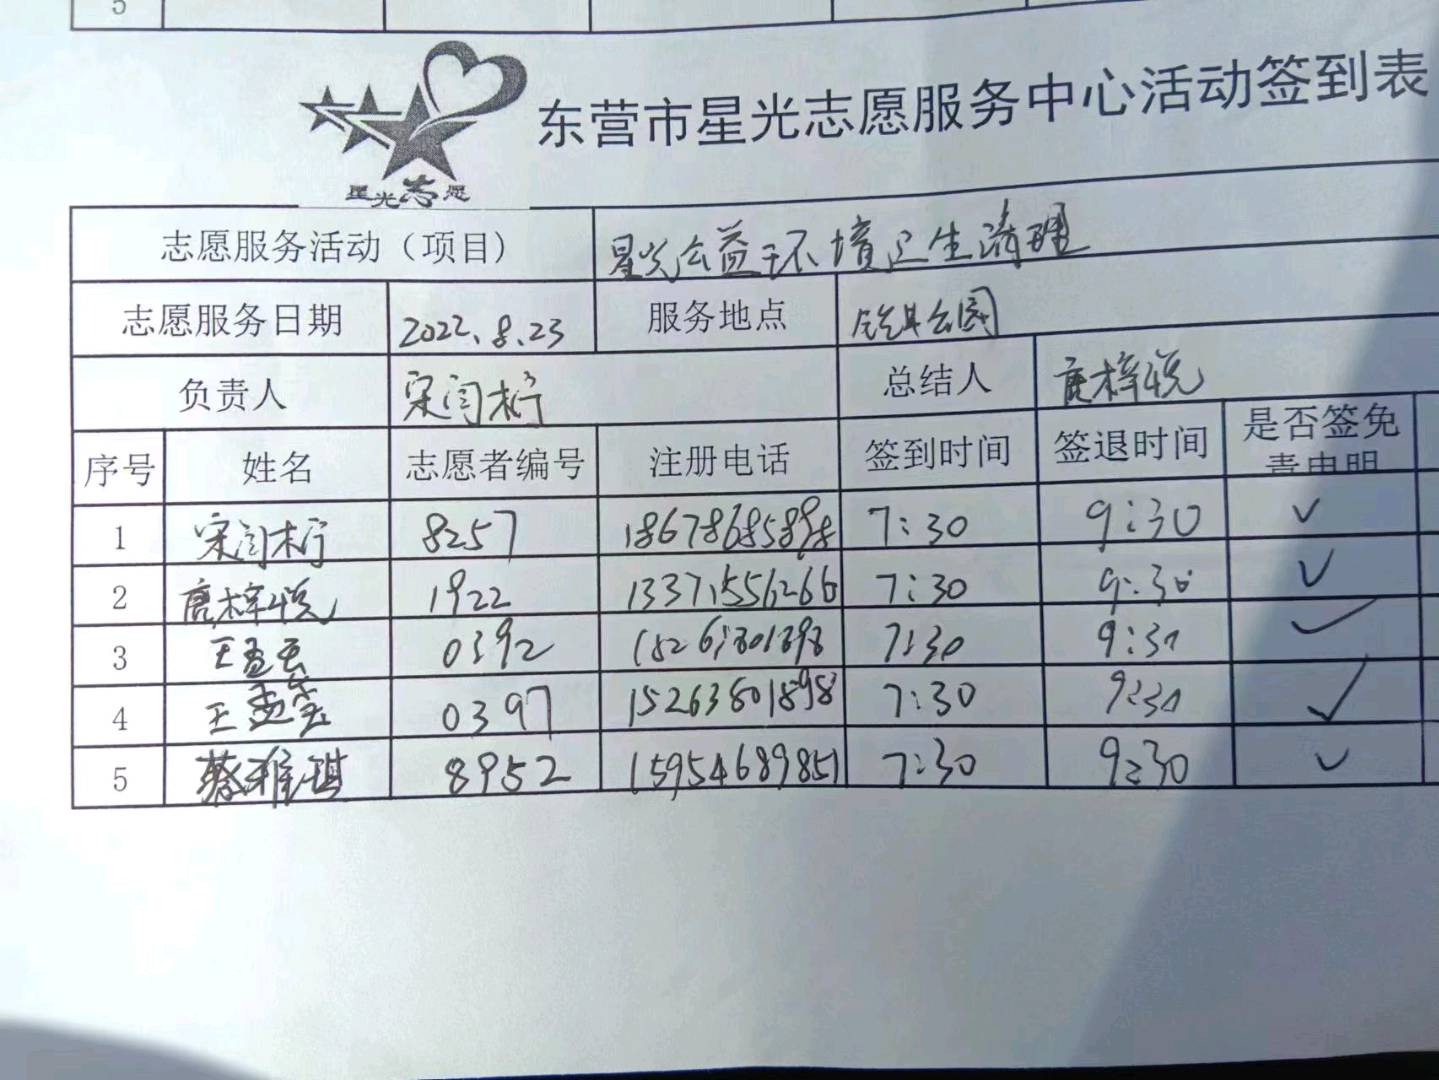 5
东营市星光志愿服务中心活动签到表
星光志愿
志愿服务活动（项目） 星光公益环境卫生清理
志愿服务日期 2022.8.23 服务地点 公园
负责人 宋闫柠 总结人 唐梓悦
序号 姓名 志愿者编号 注册电话 签到时间 签退时间 是否签免责申明
1 宋闫柠 8257 18678685898 7:30 9:30 ✓
2 唐梓悦 1922 13371556266 7:30 9:30 ✓
3 王孟 0392 7:30 9:30 ✓
4 王孟 0397 15263801898 7:30 9:30 ✓
5 蔡雅琪 8952 15954689851 7:30 9:30 ✓